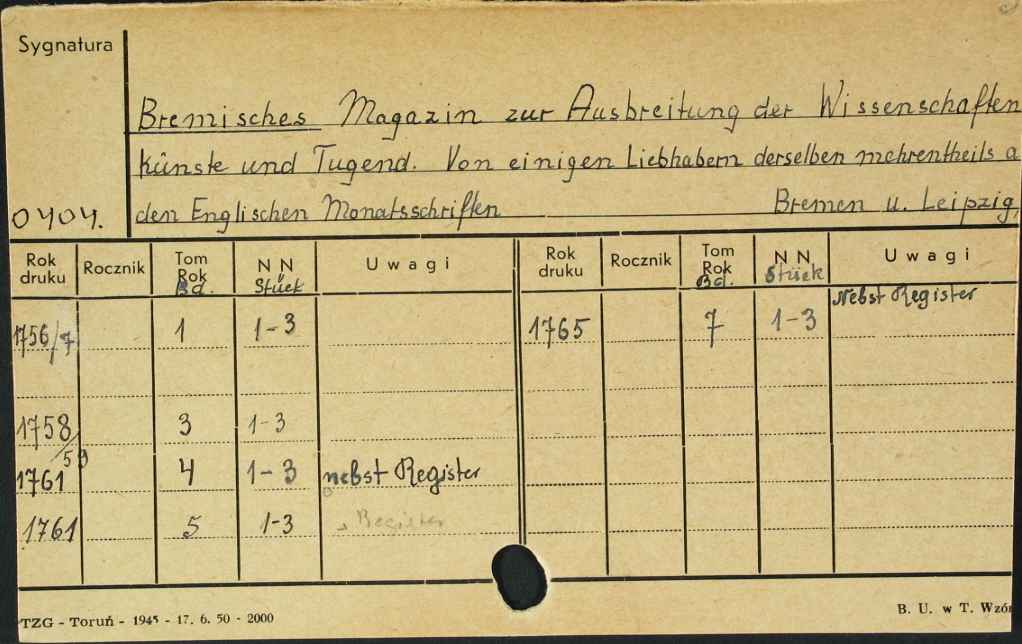 Sygnatura
Bremisches Magazin zur Ausbreitung der Wissenschaften
Künste und Tugend. Von einigen Liebhabern derselben mehrentheils a
0404. den Englischen Monatsschriften Bremen u. Leipzig
Rok druku Rocznik Tom Rok Bd. N N Stück Uwagi Rok druku Rocznik Tom Rok Bd. N N Stück Uwagi
1756/7 1 1-3 1765 7 1-3 Nebst Register
1758/59 3 1-3
1761 4 1-3 nebst Register
1761 5 1-3 Register
TZG - Toruń - 1945 - 17. 6. 50 - 2000 B. U. w T. Wzór